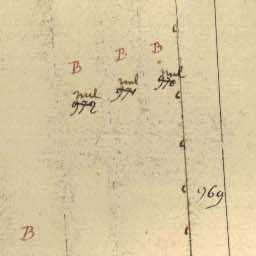 B B B
nul nul nul
972 971 970
969
B